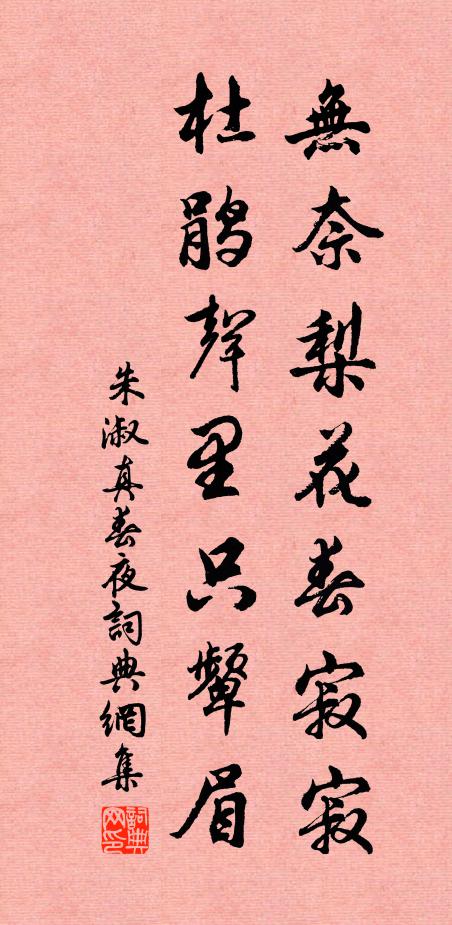 無奈梨花春寂寂
杜鹃聲里只顰眉
朱淑真春夜詞典網集
詞典网印